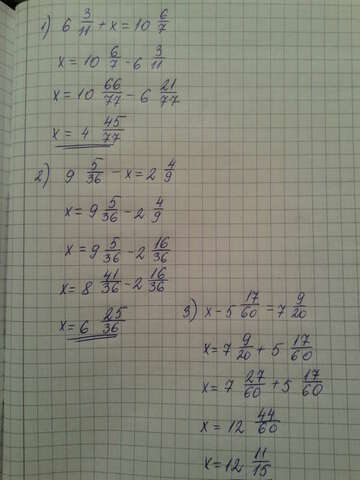 1) 6 3/11 + x = 10 6/7
x = 10 6/7 - 6 3/11
x = 10 66/77 - 6 21/77
x = 4 45/77
2) 9 5/36 - x = 2 4/9
x = 9 5/36 - 2 4/9
x = 9 5/36 - 2 16/36
x = 8 41/36 - 2 16/36
x = 6 25/36
3) x - 5 17/60 = 7 9/20
x = 7 9/20 + 5 17/60
x = 7 27/60 + 5 17/60
x = 12 44/60
x = 12 11/15